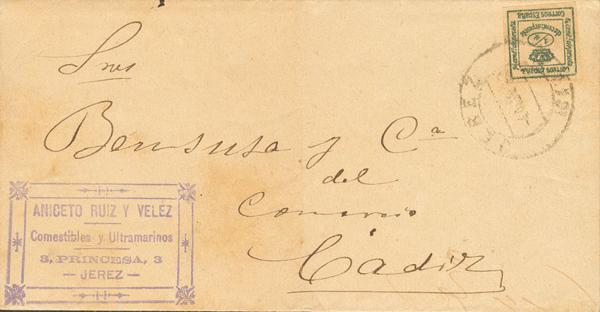 Sres
Bensusa y Cª
del
Comercio
Cádiz
ANICETO RUIZ Y VELEZ
Comestibles y Ultramarinos
3, PRINCESA, 3
— JEREZ —
Correos España
Correos España
JEREZ